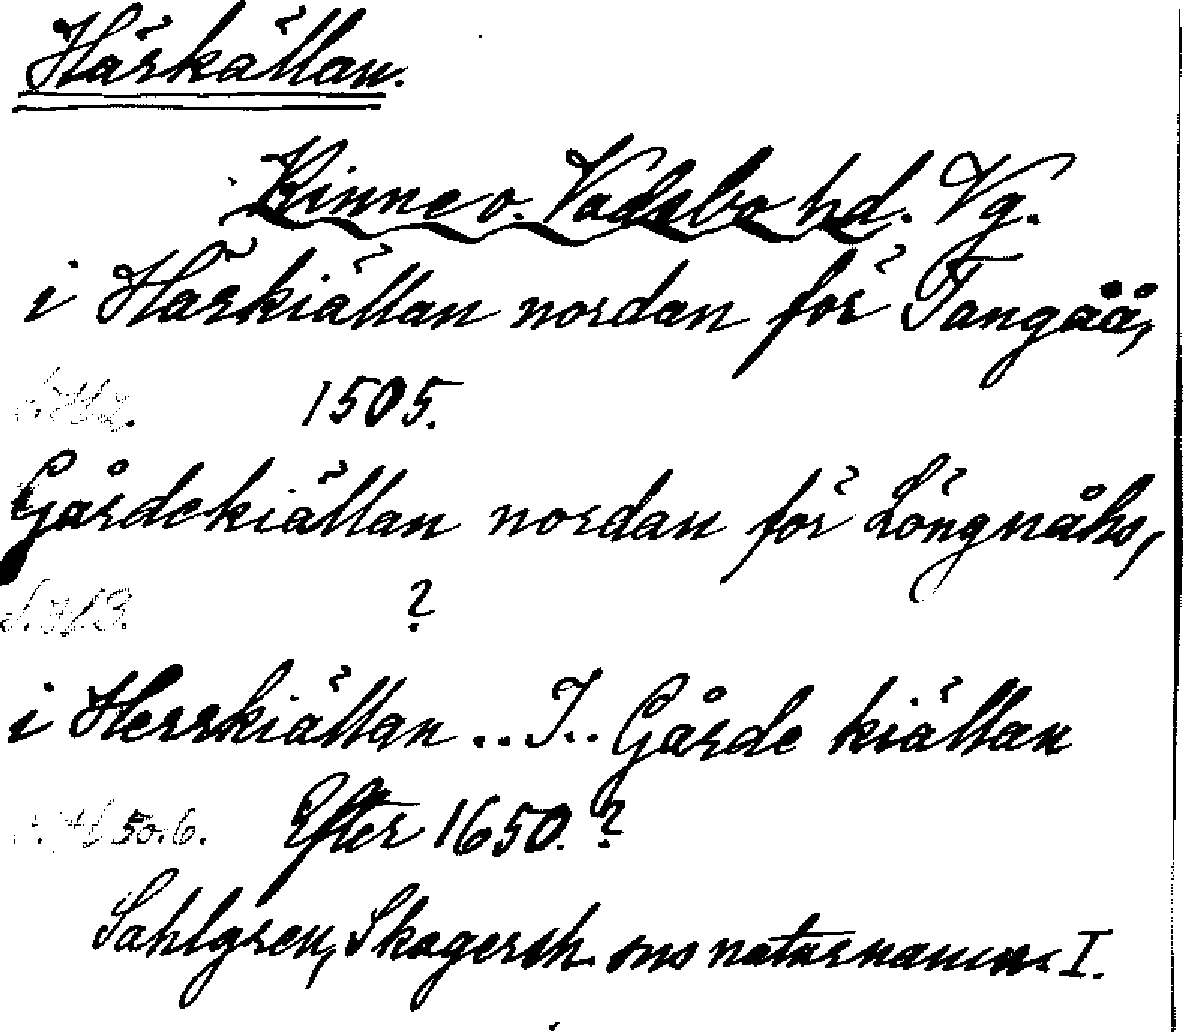 Härkällan.
Kinne o. Vadsbo hd. Vg.
i Härkiällan nordan för Tangåå,
1505.
Gårdekiällan nordan för Löngnåhs,
?
i Herrkiällan .. I.. Gårde kiällan
50.6. Efter 1650.?
Sahlgren, Skagersh. sns naturnamn I.